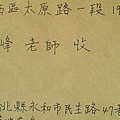 區太原路一段19
峰 老師 收
北縣永和市民生路47巷